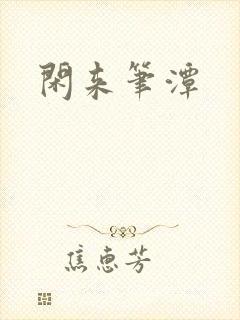 閑来筆潭
焦惠芳